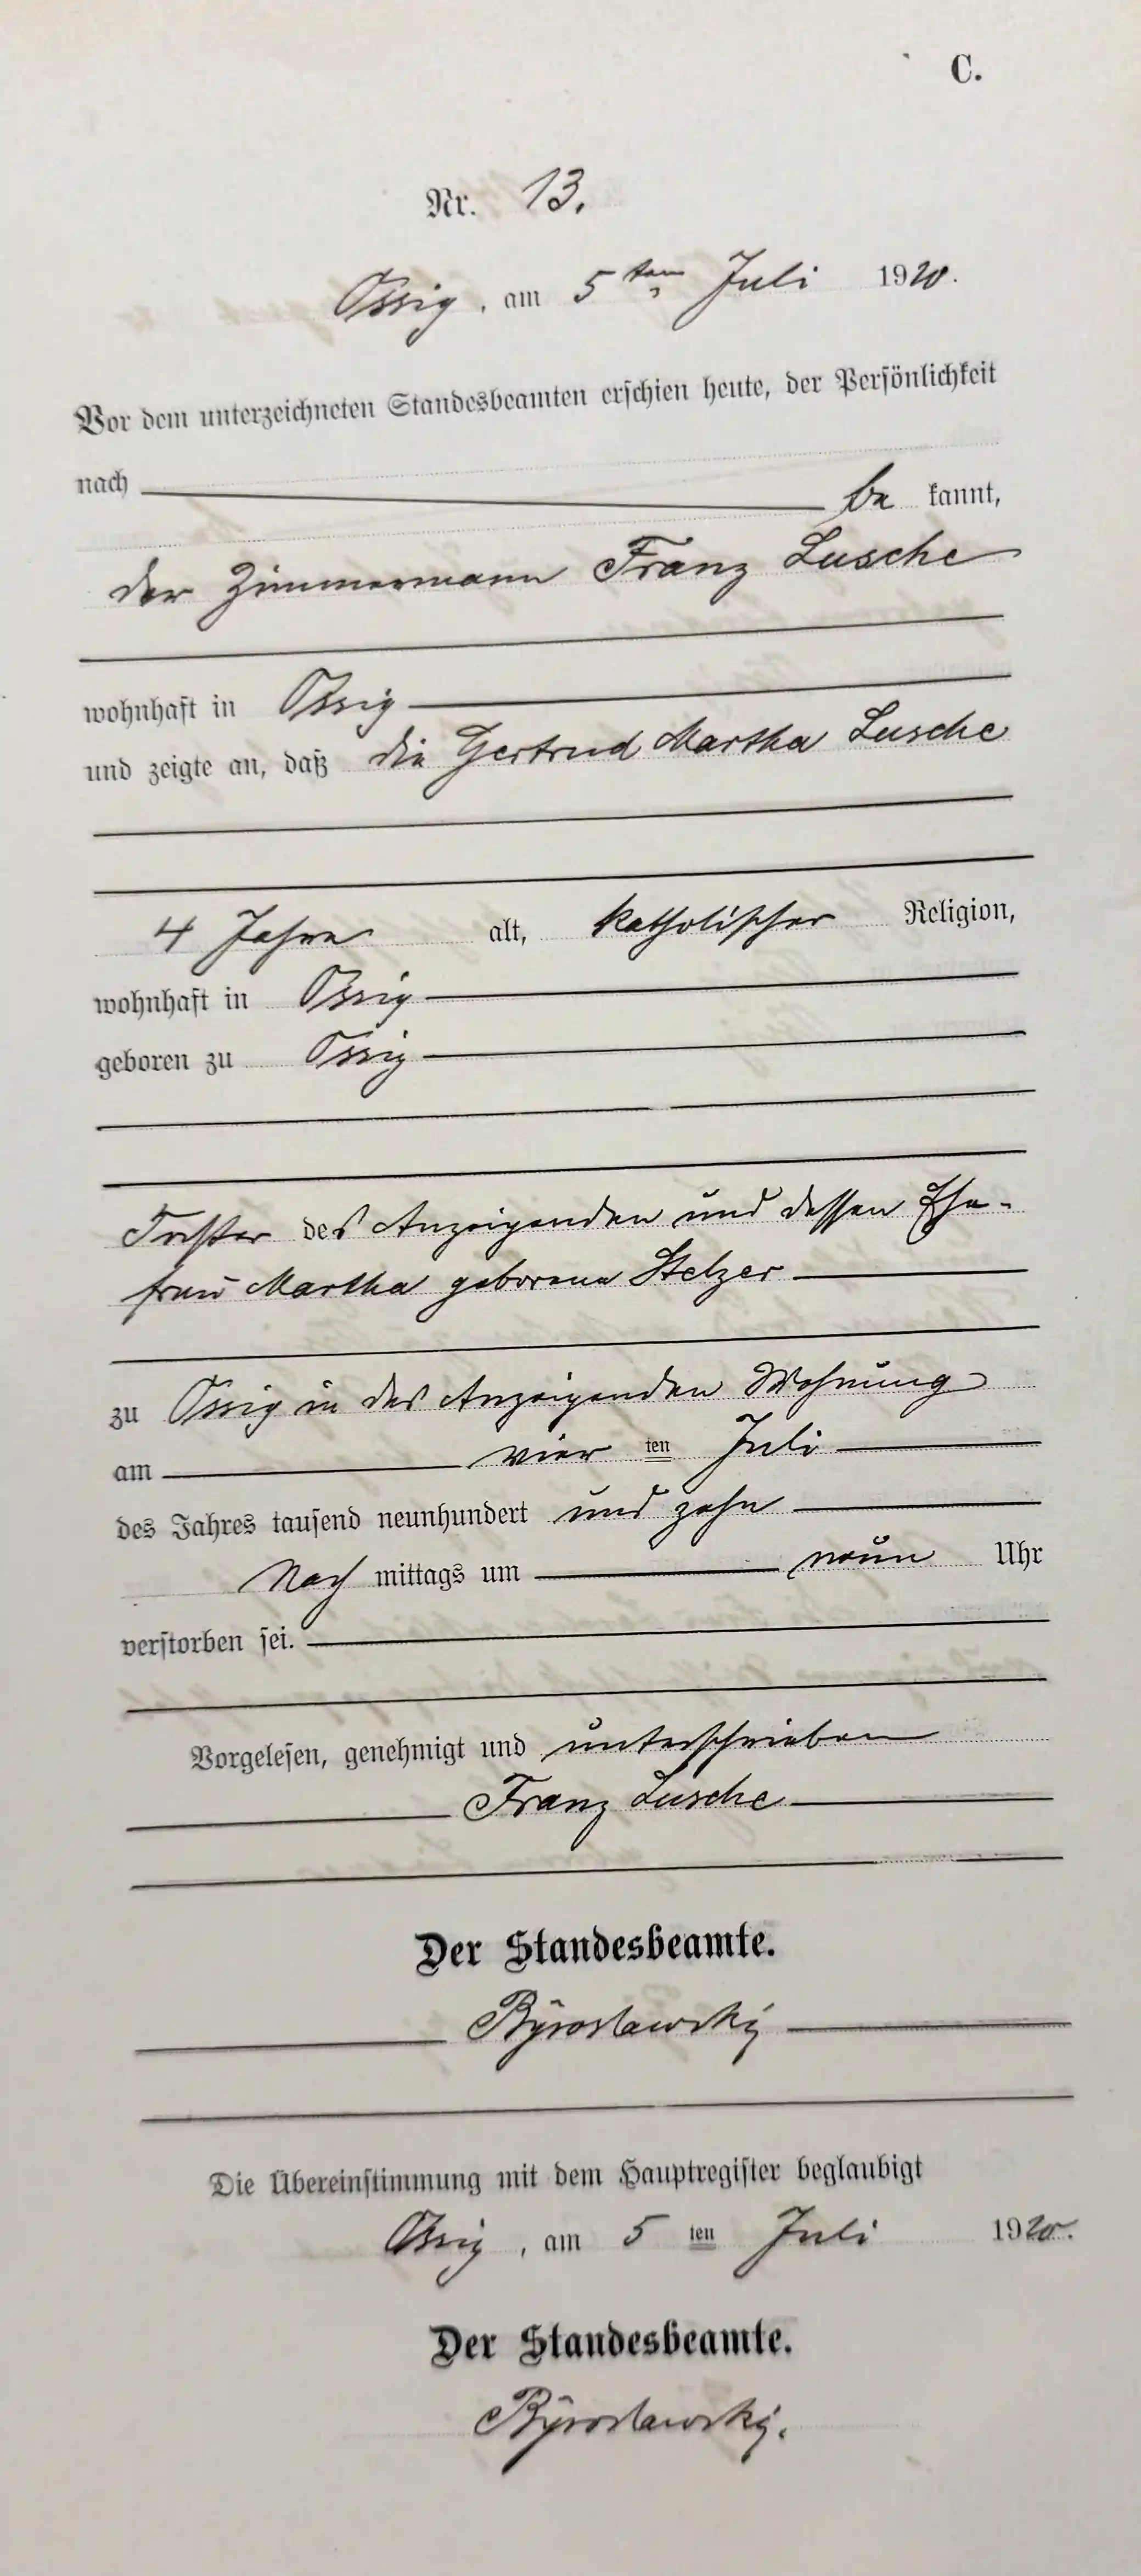 C.
Nr. 13.
Ossig, am 5ten Juli 1920.
Vor dem unterzeichneten Standesbeamten erschien heute, der Persönlichkeit
nach be kannt,
der Zimmermann Franz Lusche
wohnhaft in Ossig
und zeigte an, daß die Gertrud Martha Lusche
4 Jahre alt, katholischer Religion,
wohnhaft in Ossig
geboren zu Ossig
Tochter des Anzeigenden und dessen Ehe-
frau Martha geborene Stelzer
zu Ossig in des Anzeigenden Wohnung
am vier ten Juli
des Jahres tausend neunhundert und zehn
Nach mittags um neun Uhr
verstorben sei.
Vorgelesen, genehmigt und unterschrieben
Franz Lusche
Der Standesbeamte.
Die Übereinstimmung mit dem Hauptregister beglaubigt
Ossig, am 5 ten Juli 1920.
Der Standesbeamte.